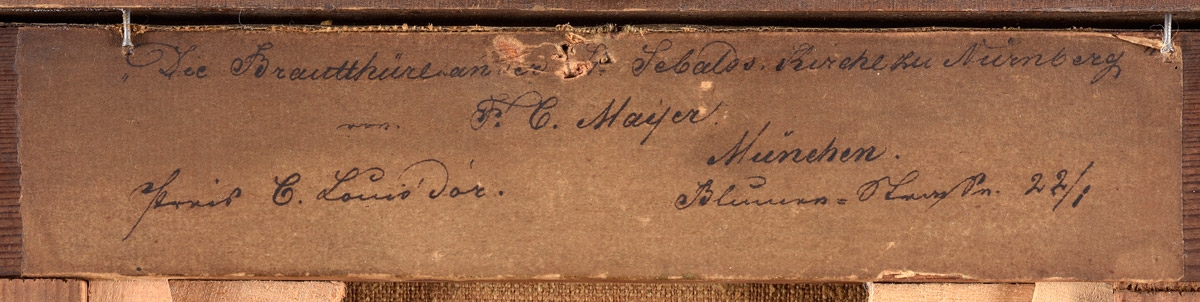 „Die Brautthüre an der St. Sebalds. Kirche zu Nürnberg
von. F. C. Maijer.
München.
Preis C. Louis'dór. Blumen=Straße. 22/1